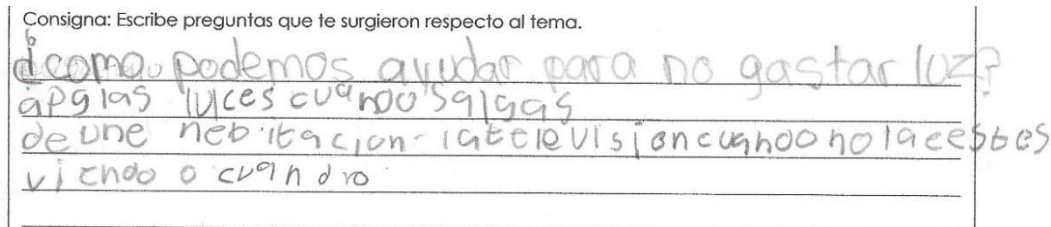 Consigna: Escribe preguntas que te surgieron respecto al tema.
¿como podemos ayudar para no gastar luz?
apg las luces cuando salgas
de une nebitacion la television cuando no la eestes
viendo o cuandro